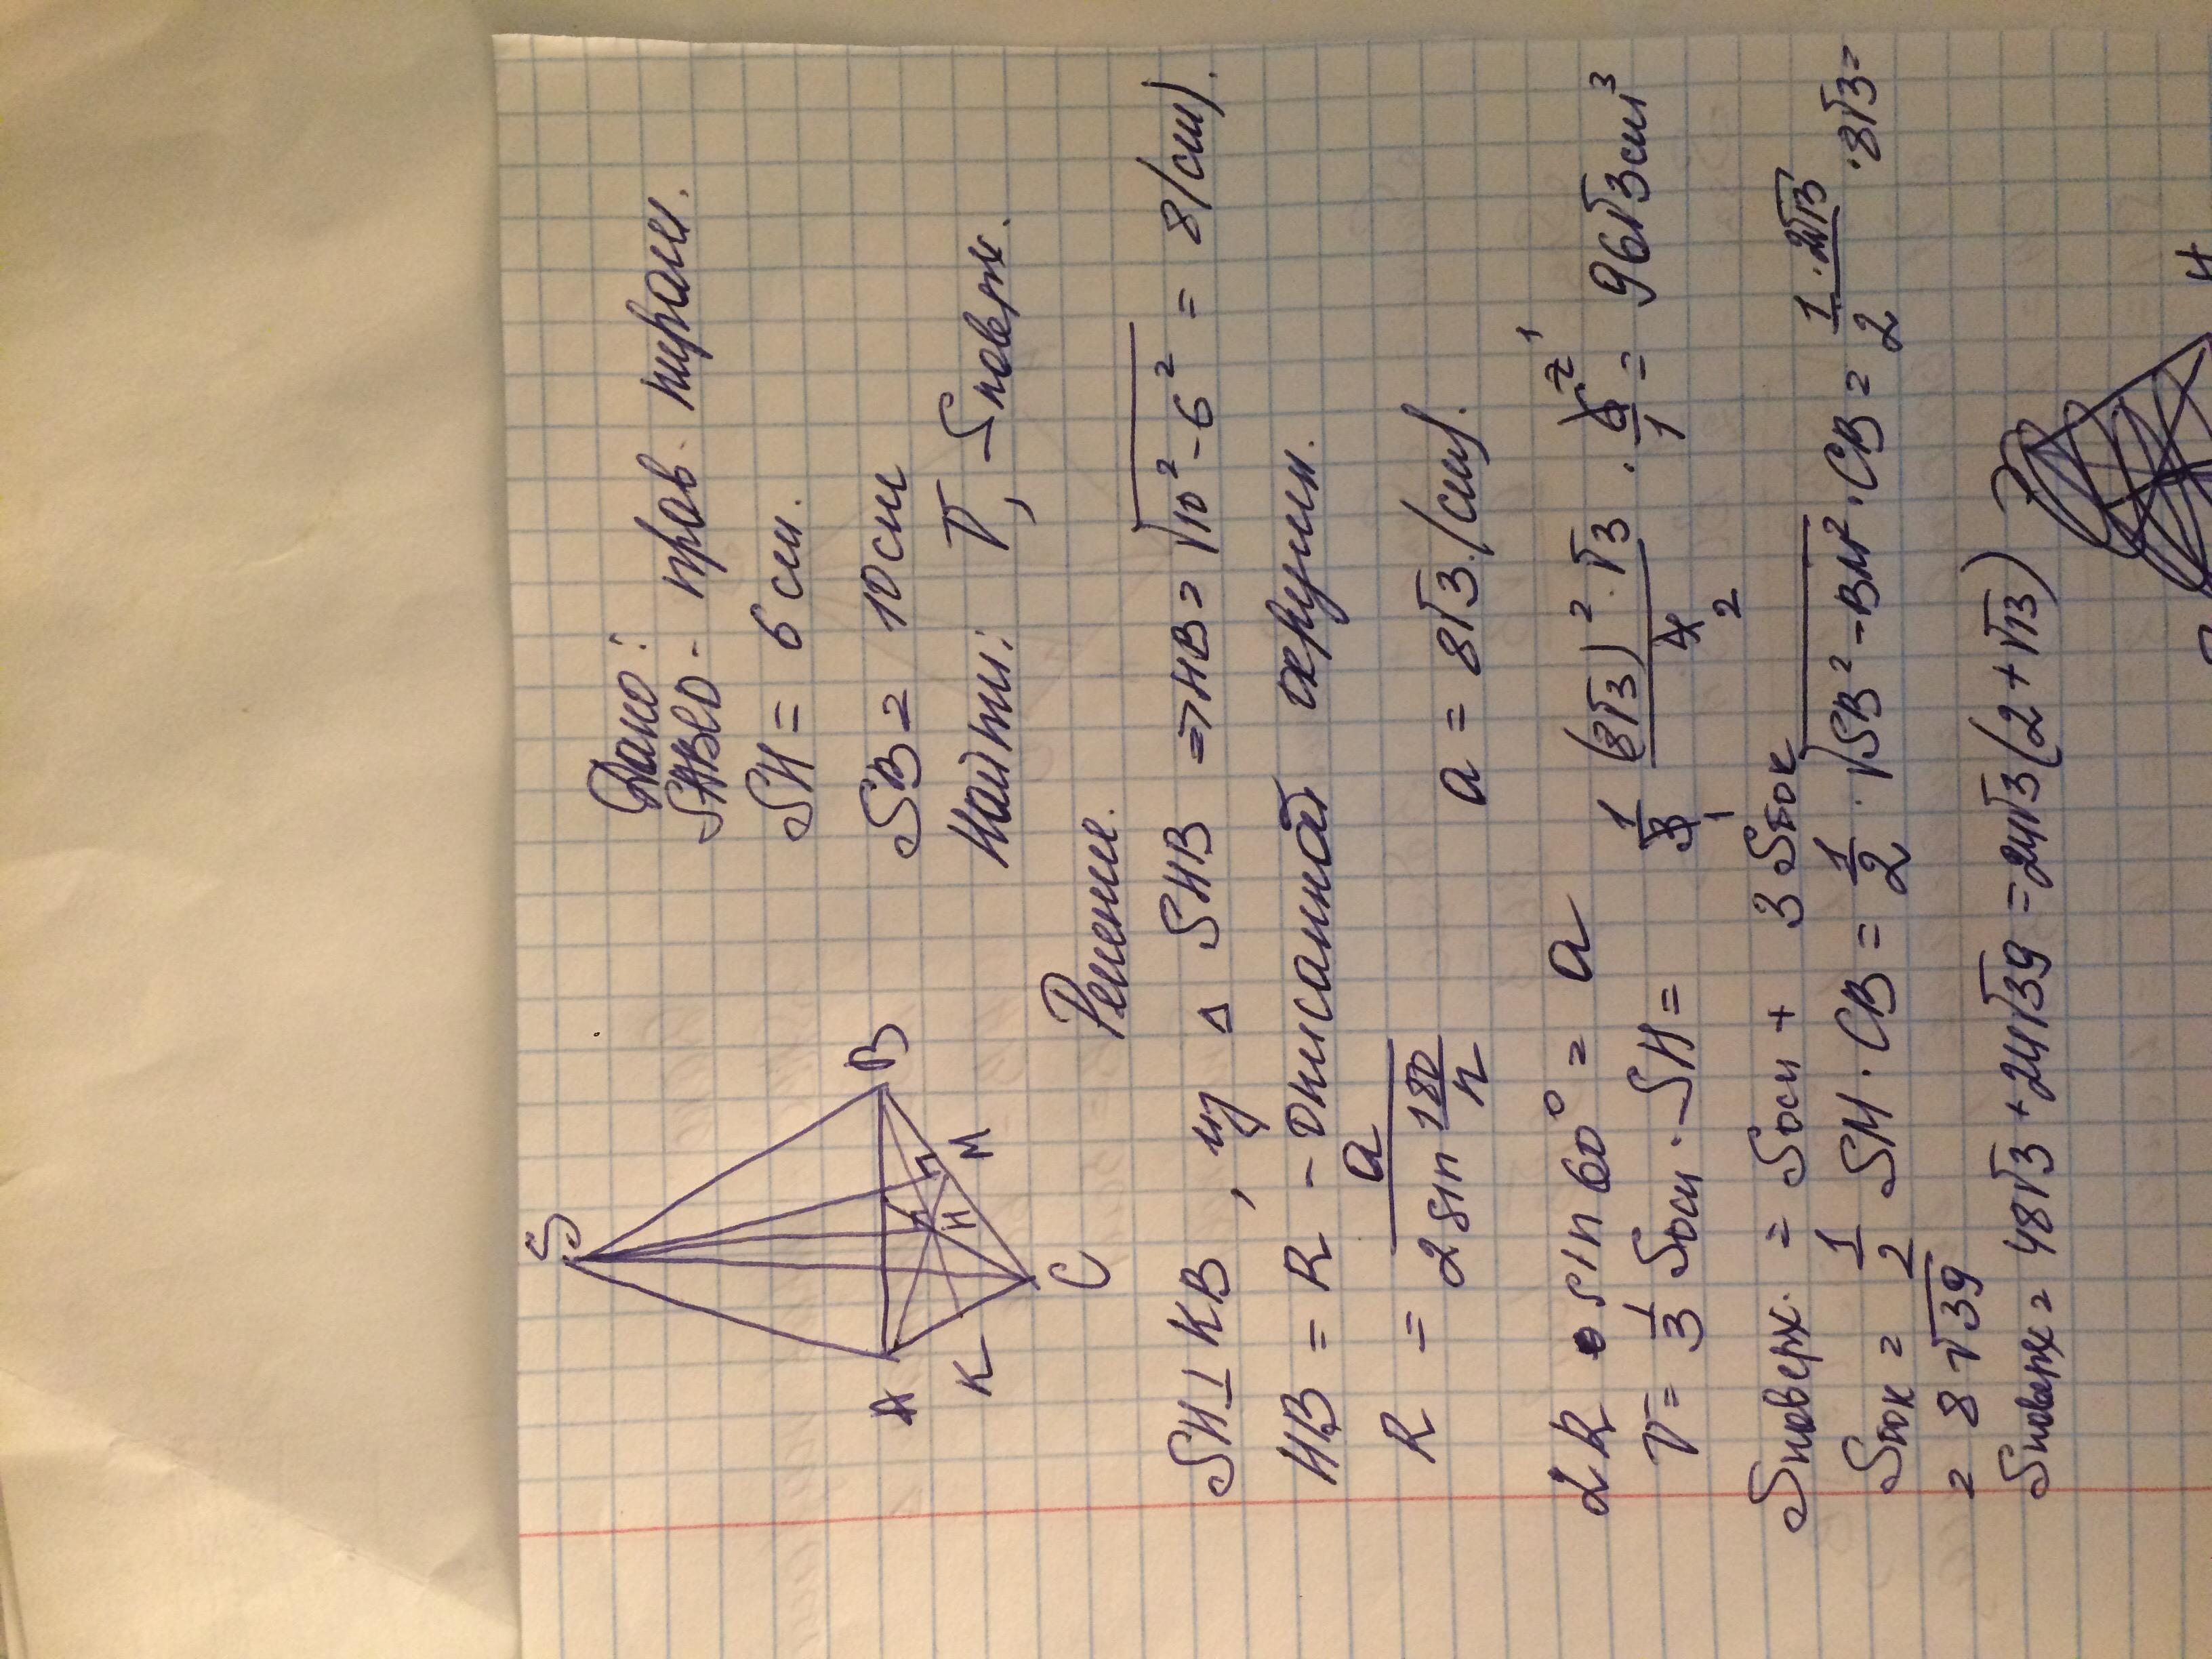 Дано:
SABCD - прав. пирам.
SH = 6 см.
SB = 10 см
Найти: V, Sповерх.
S
A
B
K
H
M
C
Решение.
SH ⊥ KB, из △ SHB => HB = √10² - 6² = 8 (см).
HB = R - описанной окружн.
R = a / 2 sin 180/n
a = 8√3 (см).
2R · sin 60° = a
V = 1/3 Sосн · SH = 1/3 · (8√3)² · √3 / 4 · 6/1 = 96√3 см³
Sповерх. = Sосн + 3 Sбок
Sбок = 1/2 SM · CB = 1/2 · √SB² - BM² · CB = 1/2 · 2√13 · 8√3 =
= 8√39
Sповерх = 48√3 + 24√39 = 24√3 (2 + √13)
H